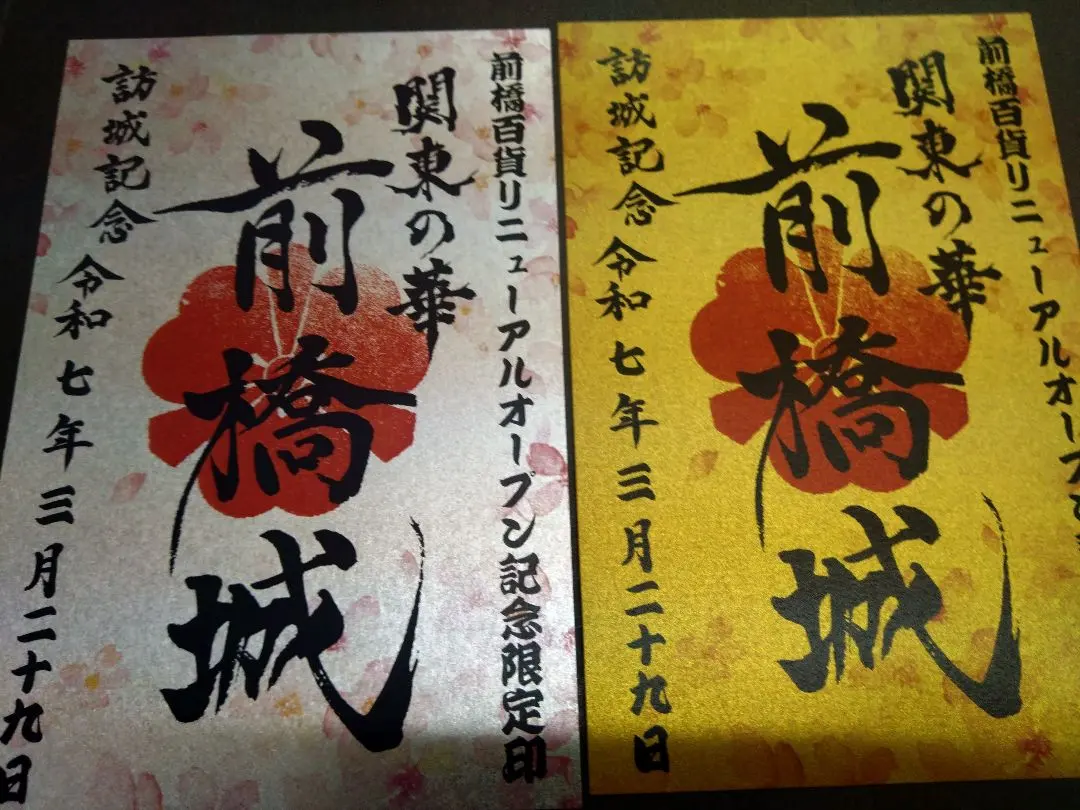 前橋百貨リニューアルオープン記念限定印
関東の華
前橋城
訪城記念 令和七年三月二十九日
前橋百貨リニューアルオープン
関東の華
前橋城
訪城記念 令和七年三月二十九日